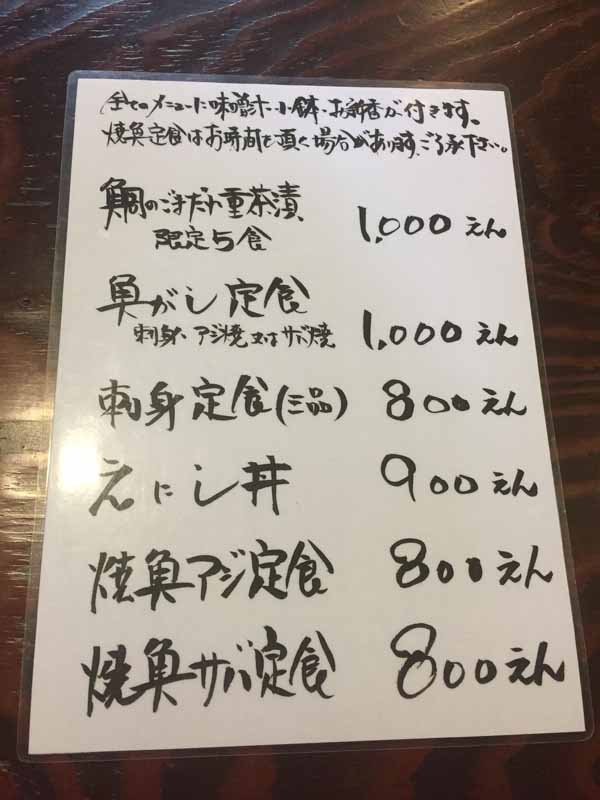 全てのメニューに味噌汁、小鉢、お新香が付きます。
焼魚定食はお時間を頂く場合があります、ご了承下さい。
鯛のごまだれ重茶漬 1,000えん
限定5食
魚がし定食
刺身、アジ焼又はサバ焼 1,000えん
刺身定食(三品) 800えん
えにし丼 900えん
焼魚アジ定食 800えん
焼魚サバ定食 800えん